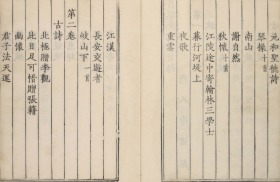 元和聖德詩
琴操十首
南山
謝自然
秋懷十首
江陵途中寄翰林三學士
暮行河堤上
夜歌
重雲
江漢
長安交遊者
岐山下一首
第二卷
古詩
北極贈李觀
此日足可惜贈張籍
幽懷
君子法天運